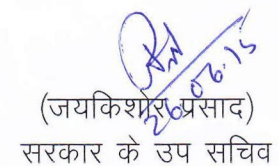 26.06.15
(जयकिशोर प्रसाद)
सरकार के उप सचिव